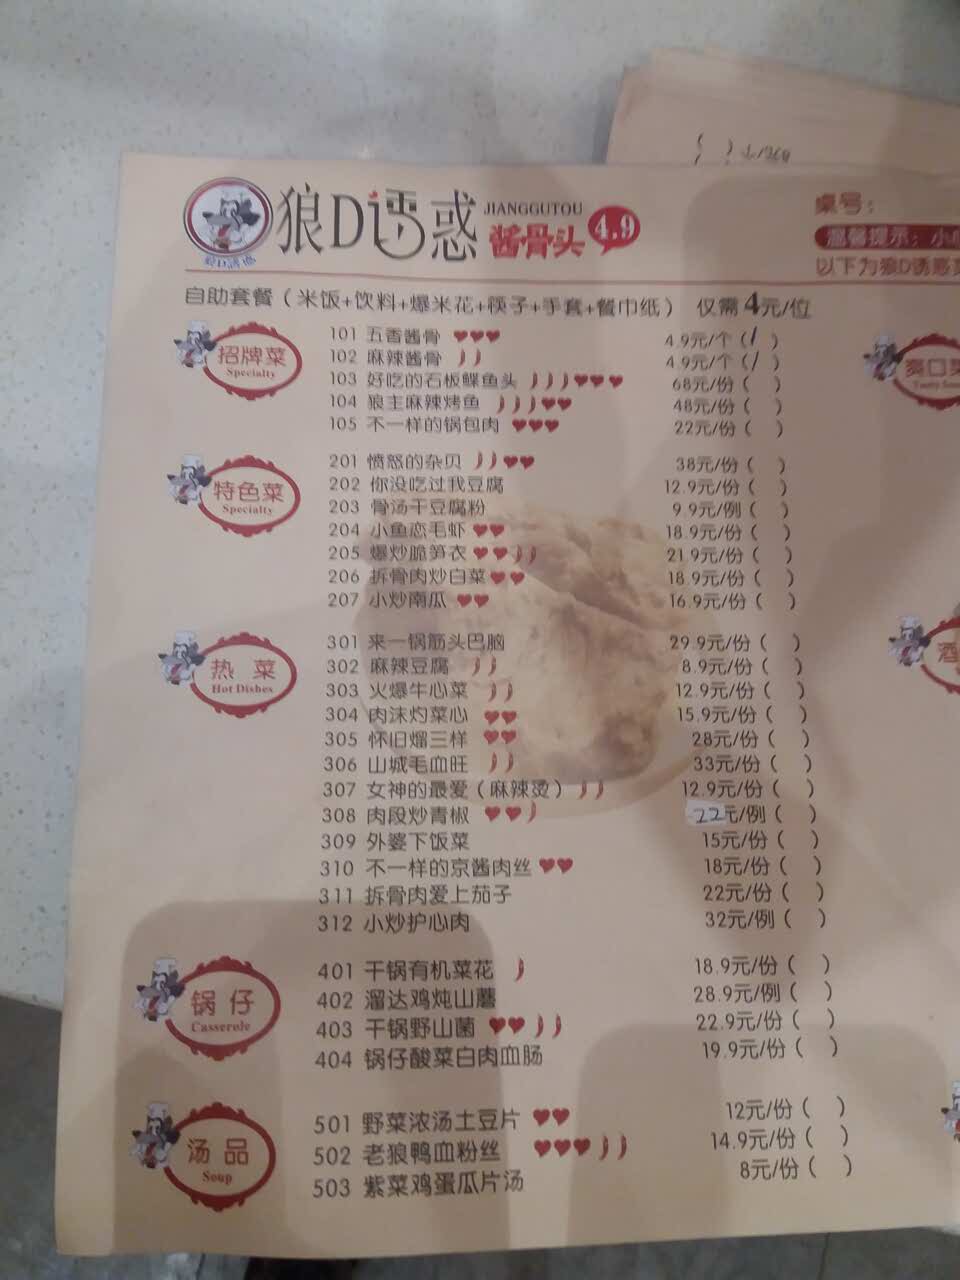 狼D诱惑 JIANGGUTOU 酱骨头 4.9
桌号：
温馨提示：小
以下为狼D诱惑
自助套餐（米饭+饮料+爆米花+筷子+手套+餐巾纸） 仅需4元/位
招牌菜
Specialty
101 五香酱骨 4.9元/个 ( / )
102 麻辣酱骨 4.9元/个 ( / )
103 好吃的石板鲽鱼头 68元/份 ( )
104 狼主麻辣烤鱼 48元/份 ( )
105 不一样的锅包肉 22元/份 ( )
爽口菜
特色菜
Specialty
201 愤怒的杂贝 38元/份 ( )
202 你没吃过我豆腐 12.9元/份 ( )
203 骨汤干豆腐粉 9.9元/例 ( )
204 小鱼恋毛虾 18.9元/份 ( )
205 爆炒脆笋衣 21.9元/份 ( )
206 拆骨肉炒白菜 18.9元/份 ( )
207 小炒南瓜 16.9元/份 ( )
热菜
Hot Dishes
301 来一锅筋头巴脑 29.9元/份 ( )
302 麻辣豆腐 8.9元/份 ( )
303 火爆牛心菜 12.9元/份 ( )
304 肉沫灼菜心 15.9元/份 ( )
305 怀旧熘三样 28元/份 ( )
306 山城毛血旺 33元/份 ( )
307 女神的最爱（麻辣烫） 12.9元/份 ( )
308 肉段炒青椒 22元/例 ( )
309 外婆下饭菜 15元/份 ( )
310 不一样的京酱肉丝 18元/份 ( )
311 拆骨肉爱上茄子 22元/份 ( )
312 小炒护心肉 32元/例 ( )
酒
锅仔
Casserole
401 干锅有机菜花 18.9元/份 ( )
402 溜达鸡炖山蘑 28.9元/例 ( )
403 干锅野山菌 22.9元/份 ( )
404 锅仔酸菜白肉血肠 19.9元/份 ( )
汤品
Soup
501 野菜浓汤土豆片 12元/份 ( )
502 老狼鸭血粉丝 14.9元/份 ( )
503 紫菜鸡蛋瓜片汤 8元/份 ( )